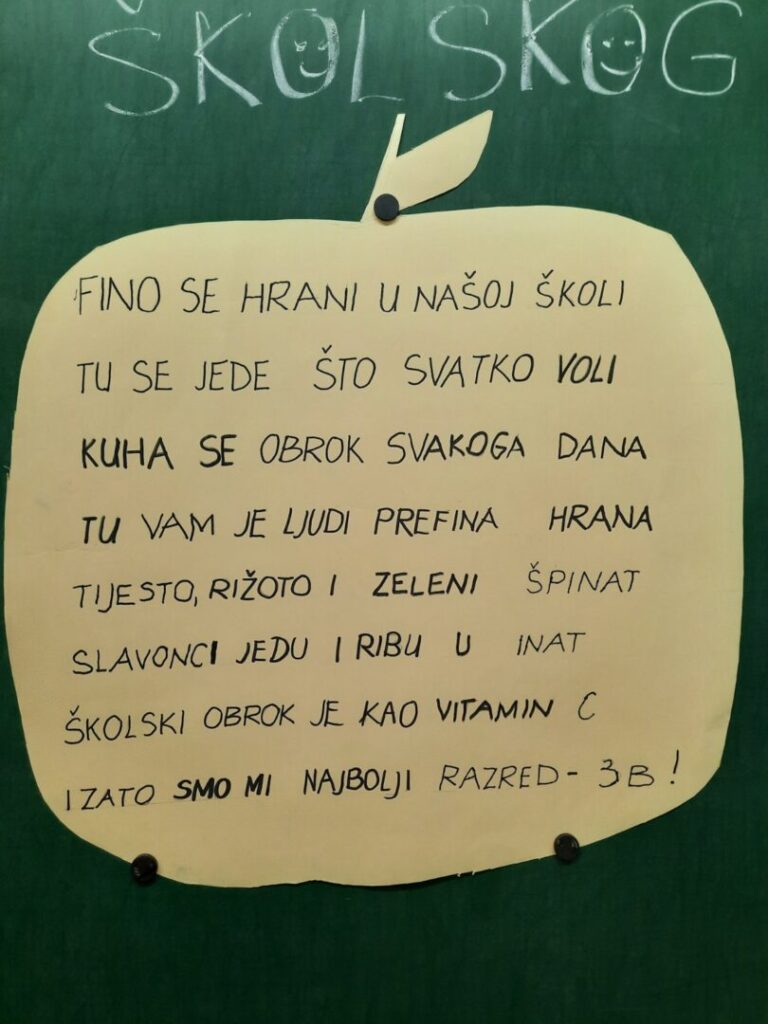 ŠKOLSKOG
FINO SE HRANI U NAŠOJ ŠKOLI
TU SE JEDE ŠTO SVATKO VOLI
KUHA SE OBROK SVAKOGA DANA
TU VAM JE LJUDI PREFINA HRANA
TIJESTO, RIŽOTO I ZELENI ŠPINAT
SLAVONCI JEDU I RIBU U INAT
ŠKOLSKI OBROK JE KAO VITAMIN C
I ZATO SMO MI NAJBOLJI RAZRED - 3B!